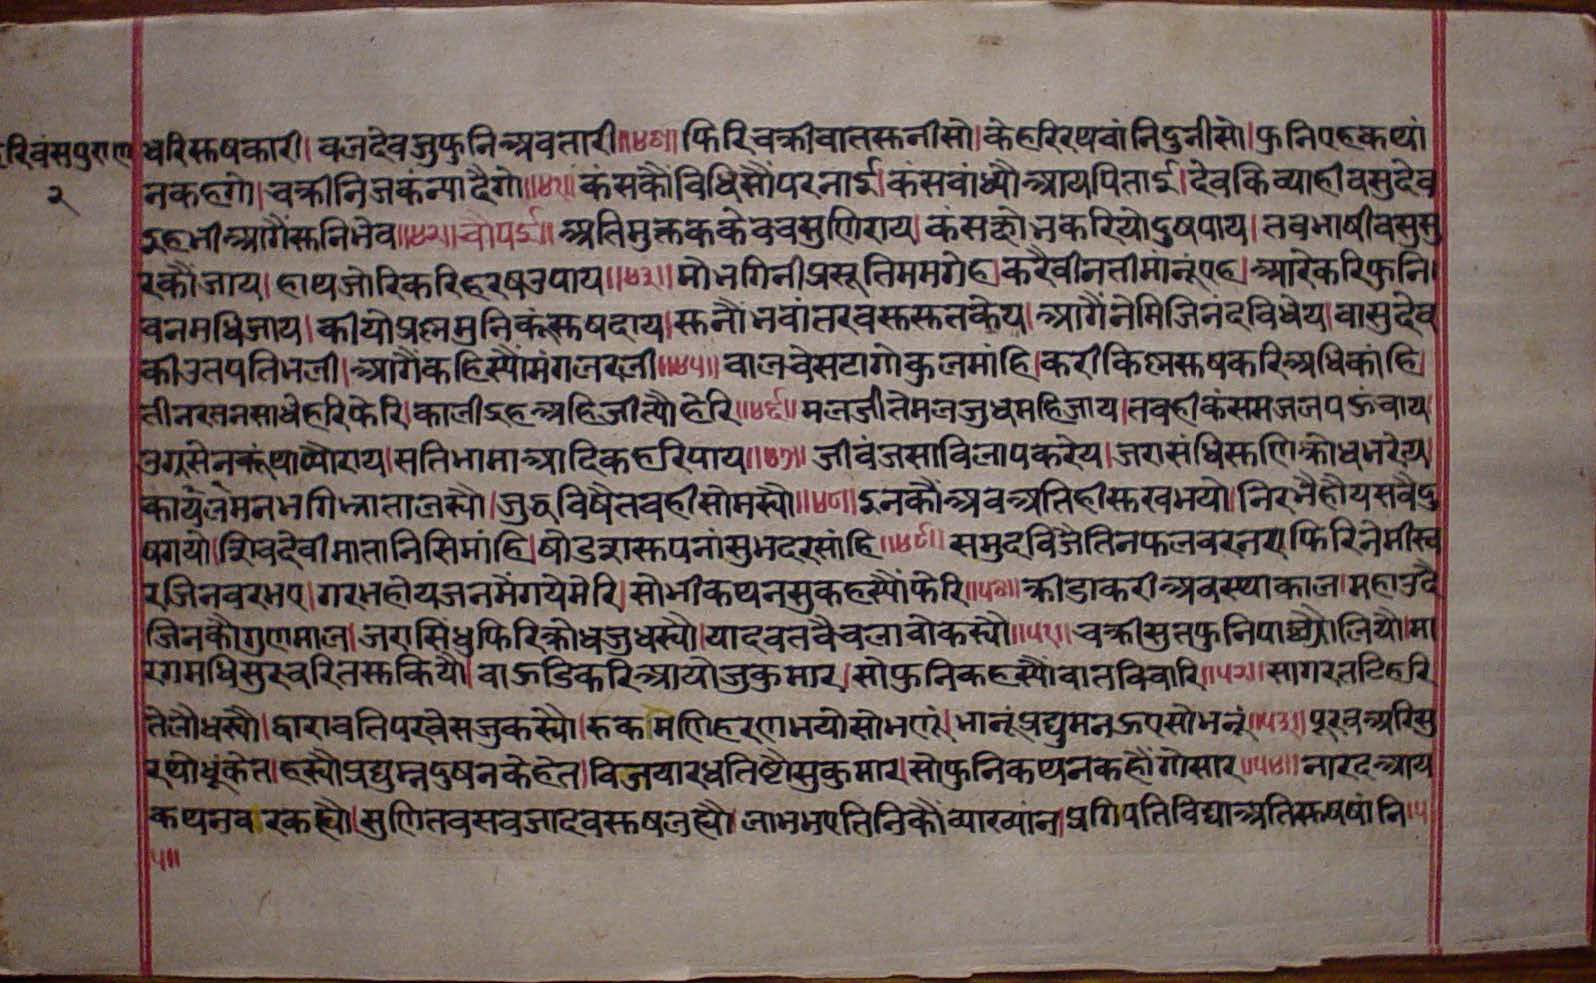 हरिवंसपुराण
२
धरिस्तषकारी। वलदेवजुफुनिअवतारी॥४०॥ फिरिचक्रीवातस्तनीसो। केहरिरथवांनिदुनीसो। फुनिएहकथां
नकहगो। चक्रीनिजकंन्यादैगो॥४१॥ कंसकौंविधिसौंपरनाई। कंसवांध्यौआयपिताई। देवकिव्याहीवसुदेव
इहभीआगैंस्तनिभेव॥४२॥ चौपई॥ अतिमुक्तकके मुणिराय। कंसक्षोभकरियोदुषपाय। तवभाषीवसुसु
रकौंजाय। हाथजोरिकरिहरषउपाय॥४३॥ मोभगिनीप्रसूतिममगेह। करैवीनतीमांनूंएह। आरेकरिफुनि
वनमधिजाय। कीयोप्रश्नमुनिकूंस्तषदाय। स्तनौंभवांतरवस्तस्ततकेय। आगैंनेमिजिनंदविधेय। वासुदेव
कीउतपतिभली। आगैंकहिस्यौंमंगलरली॥४५॥ वालवेसटागोकुलमांहि। करीकिश्नस्तषकरिअधिकांहि।
तीनरतनसाधेहरिफेरि। कालीइहअहिजीत्यौहेरि॥४६॥ मलजीतेमलजुधमहिजाय। तवहीकंसमजलपऊंचाय
उग्रसेनकूंथाप्योराय। सतिभामाआदिकहरिपाय॥४७॥ जीवंजसाविलापकरेय। जरासंधिस्तणिक्रोधधरेय।
भगिभ्रातालस्यौ। जुद्धविषैतवहीसोमस्यौ॥४८॥ इनकौंअवअतिहीस्तखभयो। निरभैहौयसवैदु
षगयो। शिवदेवीमातानिसिमांहि। षोडशस्तपनांसुभदरसांहि॥४९॥ समुदविजैतिनफलवरनए। फिरिनेमीस्व
रजिनवरभए। गरभहोयजनमेंगयेमेरि। सोभीकथनसुकहस्यौंफेरि॥५०॥ क्रीडाकरीअवस्थाकाल। महाउदै
जिनकौगुणमाल। जरासिंधुफिरिक्रोधजुधस्यौ। यादवतवैचलावोकस्यौ॥५१॥ चक्रीसुतफुनिपाछैंगौलियौ। मा
रगमधिसुरचरितस्तकियौ। वाऊडिकरिआयोजुकुमार। सोफुनिकहस्यौंवातविचारि॥५२॥ सागरतटिहरि
तेलौधस्यौ। द्वारावतिपरवेसजुकस्यौ। रुकमिणिहरणभयोसोभणूं। भानूंप्रद्युमनऊएसोभनूं॥५३॥ पूरवअरिसु
रथोधूंकेत। हस्यौप्रद्युम्नदुषनकेहेत। विजयारधतिष्टौसुकुमार। सोफुनिकथनकहौंगोसार॥५४॥ नारदआय
कथनव रकह्यौ। सुणितवसवजादवस्तषलह्यौ। लाभभएतिनिकौंव्याख्यांन। प्रगिपतिविद्याअतिस्तषषांनि॥५
५॥